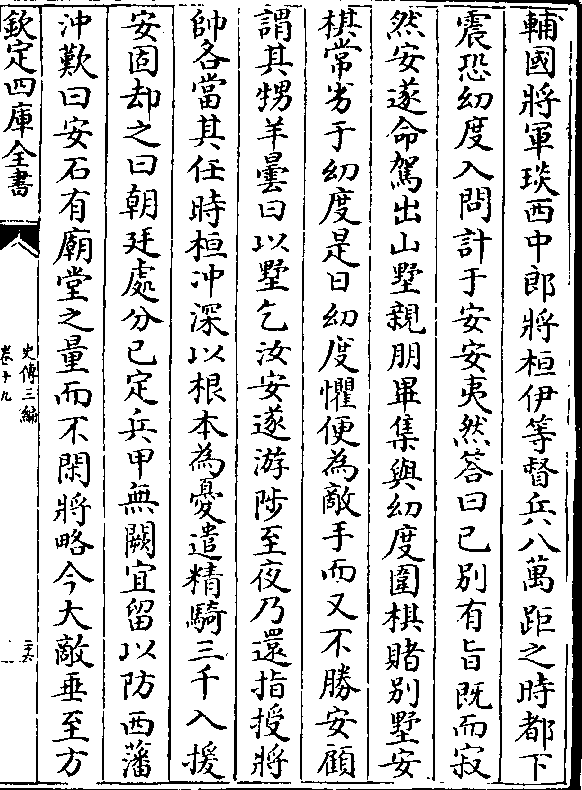 輔國將軍琰西中郎將桓伊等督兵八萬距之時都下
震恐幼度入問計于安安夷然答曰已别有旨既而寂
然安遂命駕出山墅親朋畢集與幼度圍棋賭别墅安
棋常劣于幼度是日幼度懼便為敵手而又不勝安顧
謂其甥羊曇曰以墅乞汝安遂游陟至夜乃還指授將
帥各當其任時桓沖深以根本為憂遣精騎三千入援
安固却之曰朝廷處分已定兵甲無闕宜留以防西藩
沖歎曰安石有廟堂之量而不閑將略今大敵垂至方
欽定四庫全書
史傳三編
卷十九
三六